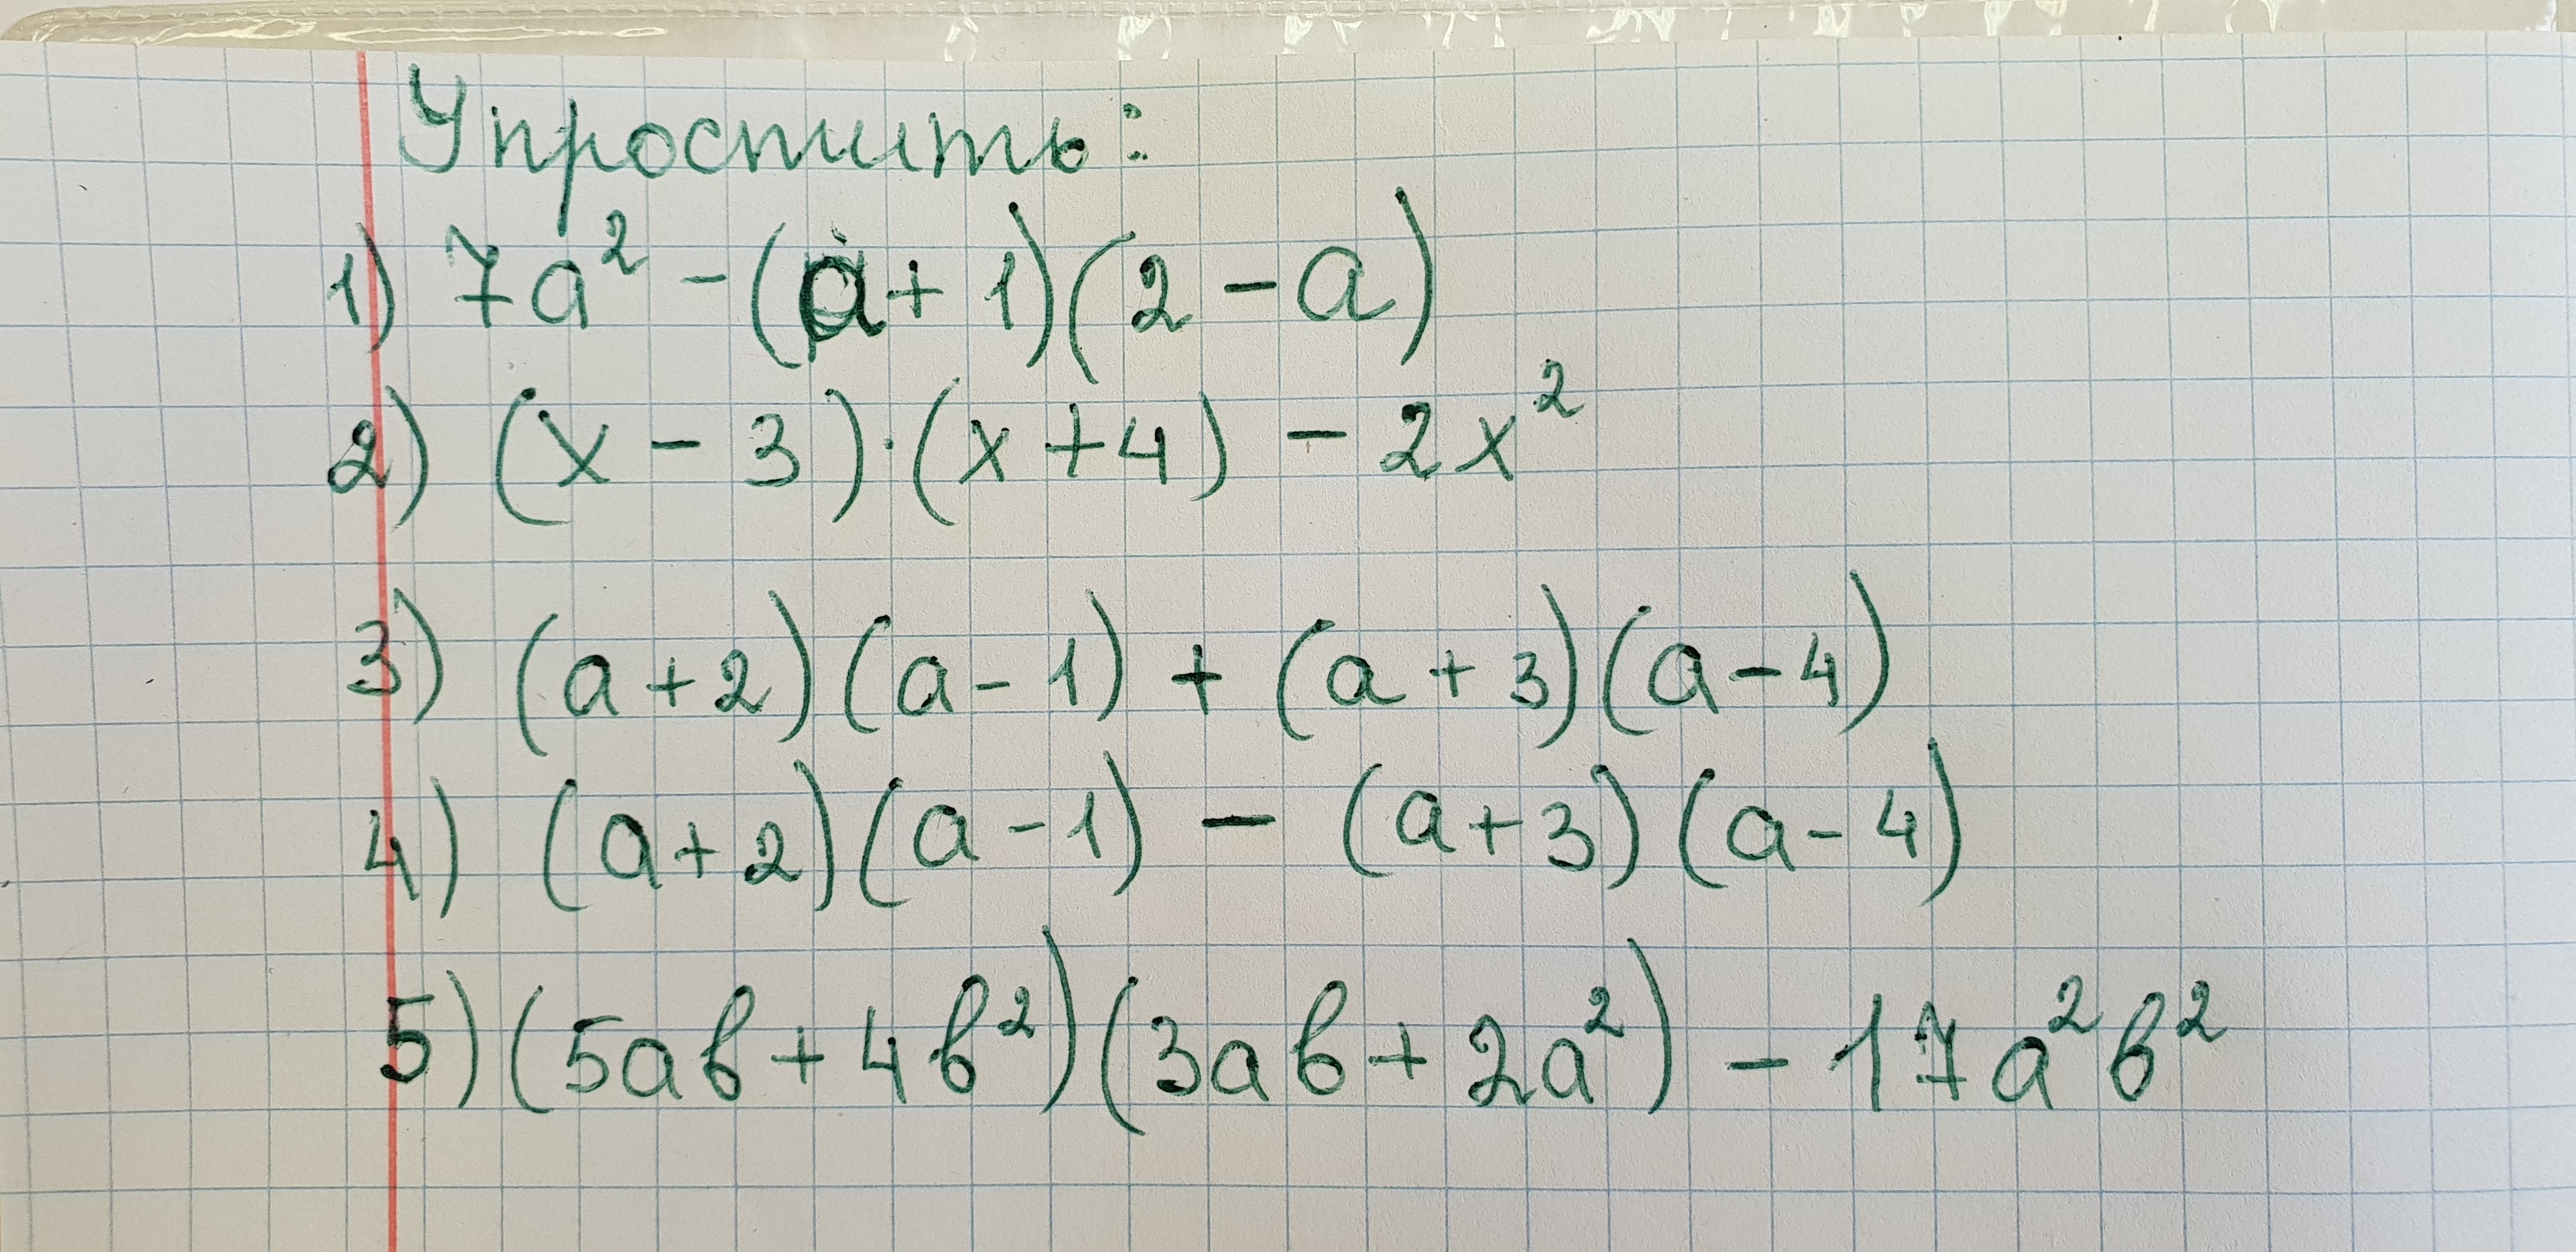 Упростить:
1) 7a² - (a + 1)(2 - a)
2) (x - 3)·(x + 4) - 2x²
3) (a + 2)(a - 1) + (a + 3)(a - 4)
4) (a + 2)(a - 1) - (a + 3)(a - 4)
5) (5ab + 4b²)(3ab + 2a²) - 17a²b²